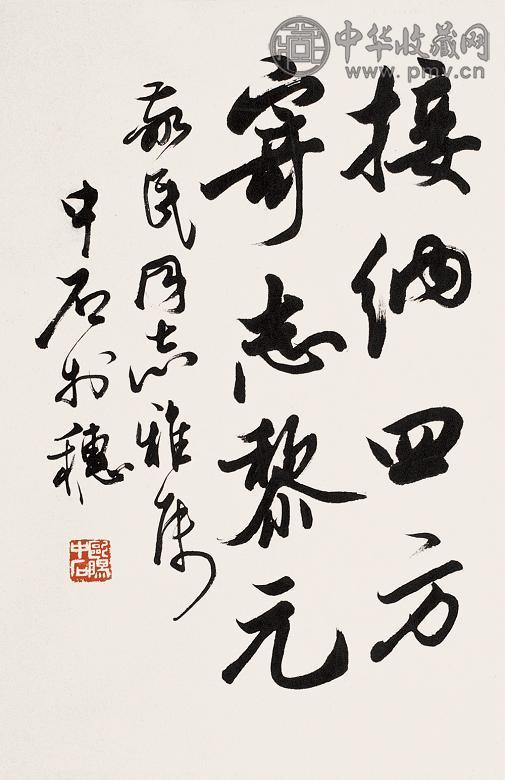 中华收藏网
www.pmv.cn
接纳四方
寄志黎元
民同志雅属
中石於穗
歐陽中石